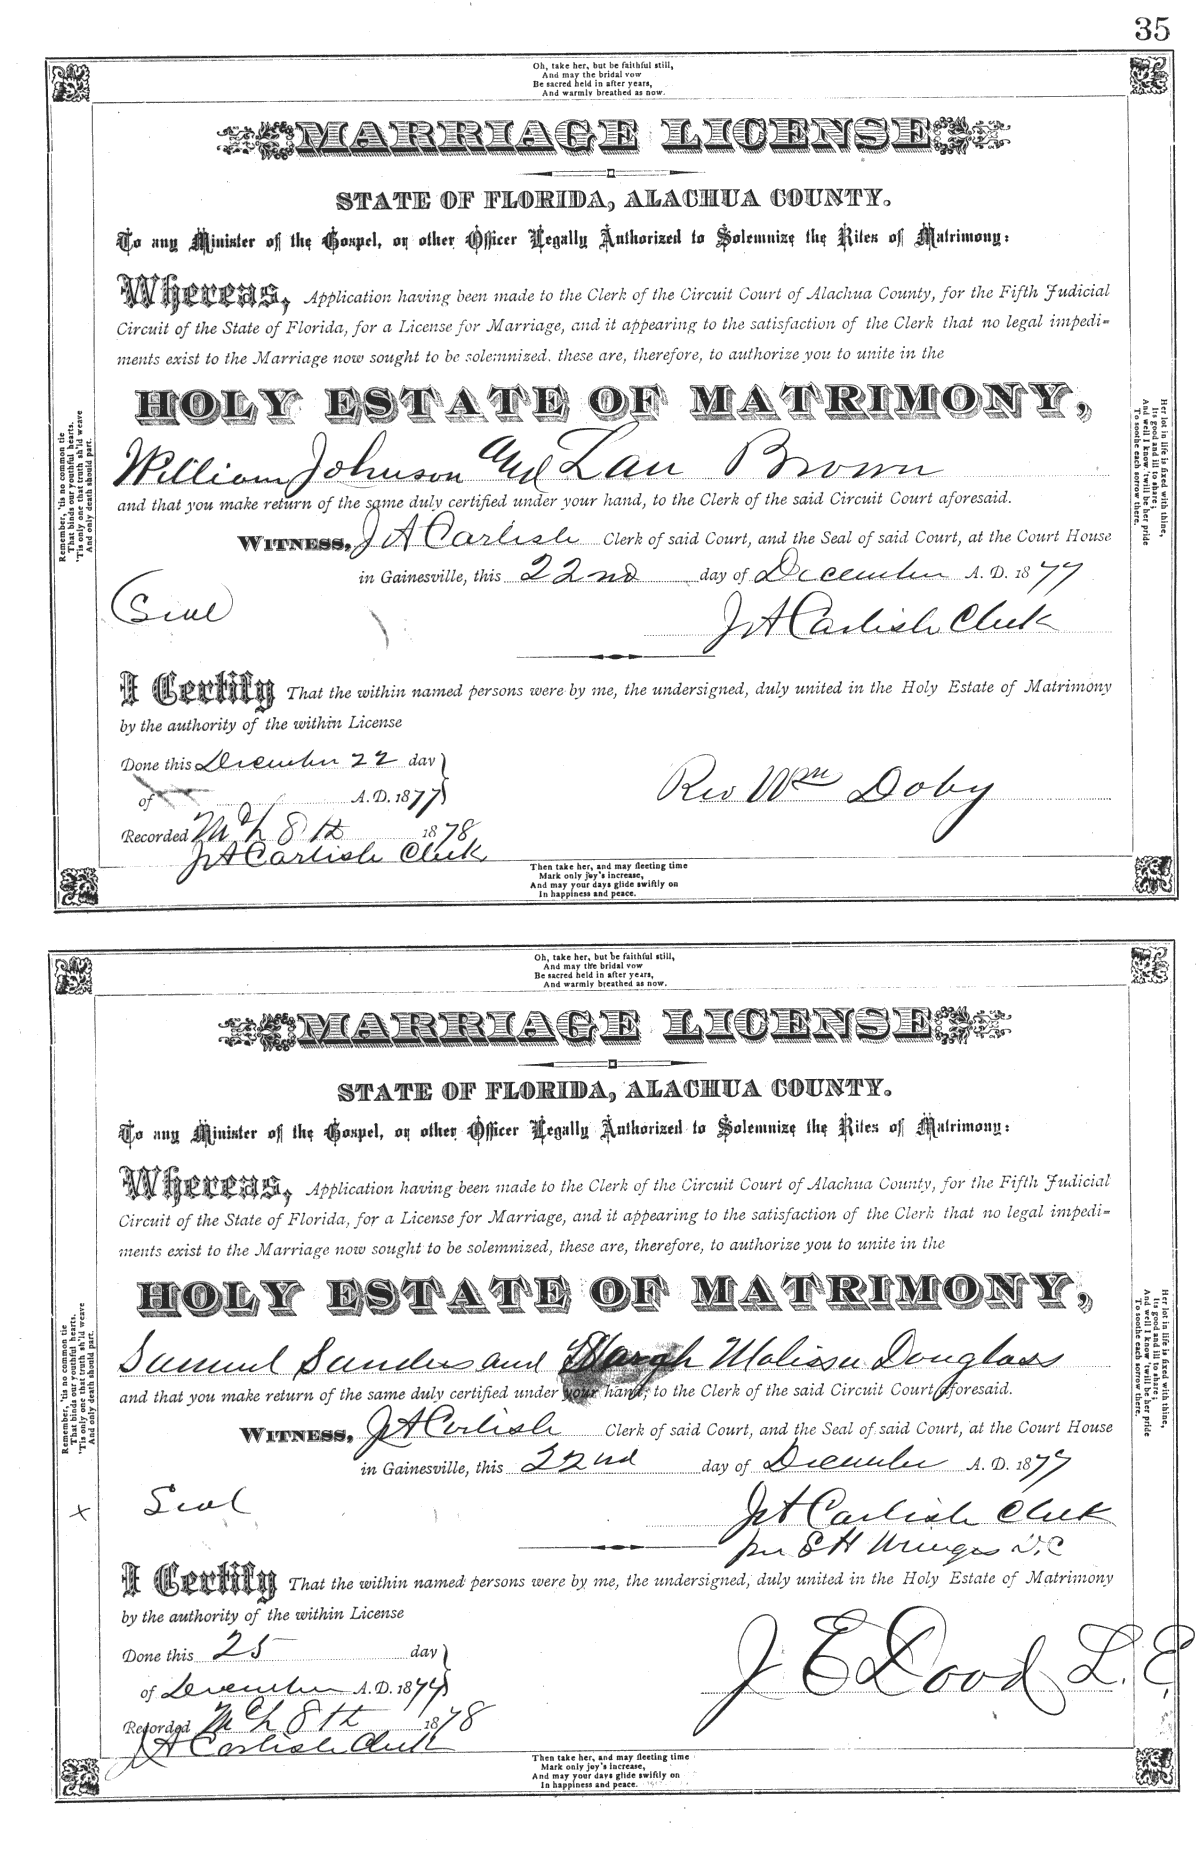 35
Oh, take her, but be faithful still,
And may the bridal vow
Be sacred held in after years,
And warmly breathed as now.
MARRIAGE LICENSE
STATE OF FLORIDA, ALACHUA COUNTY.
To any Minister of the Gospel, or other Officer Legally Authorized to Solemnize the Rites of Matrimony:
Whereas, Application having been made to the Clerk of the Circuit Court of Alachua County, for the Fifth Judicial
Circuit of the State of Florida, for a License for Marriage, and it appearing to the satisfaction of the Clerk that no legal impedi-
ments exist to the Marriage now sought to be solemnized. these are, therefore, to authorize you to unite in the
HOLY ESTATE OF MATRIMONY,
William Johnson and Lau Brown
and that you make return of the same duly certified under your hand, to the Clerk of the said Circuit Court aforesaid.
WITNESS, J A Carlisle Clerk of said Court, and the Seal of said Court, at the Court House
in Gainesville, this 22nd day of December A. D. 1877
(Seal)
J A Carlisle Clerk
I Certify That the within named persons were by me, the undersigned, duly united in the Holy Estate of Matrimony
by the authority of the within License
Done this December 22 day
of A. D. 1877
Rev Wm Doby
Recorded Mch 8th 1878
J A Carlisle Clerk
Then take her, and may fleeting time
Mark only joy's increase,
And may your days glide swiftly on
In happiness and peace.
Remember, 'tis no common tie
That binds our youthful hearts.
'Tis only one that truth sh'ld weave
And only death should part.
Her lot in life is fixed with thine,
Its good and ill to share;
And well I know 'twill be her pride
To soothe each sorrow there.
Oh, take her, but be faithful still,
And may the bridal vow
Be sacred held in after years,
And warmly breathed as now.
MARRIAGE LICENSE
STATE OF FLORIDA, ALACHUA COUNTY.
To any Minister of the Gospel, or other Officer Legally Authorized to Solemnize the Rites of Matrimony:
Whereas, Application having been made to the Clerk of the Circuit Court of Alachua County, for the Fifth Judicial
Circuit of the State of Florida, for a License for Marriage, and it appearing to the satisfaction of the Clerk that no legal impedi-
ments exist to the Marriage now sought to be solemnized, these are, therefore, to authorize you to unite in the
HOLY ESTATE OF MATRIMONY,
Samuel Sanders and Malissa Douglass
and that you make return of the same duly certified under your hand, to the Clerk of the said Circuit Court aforesaid.
WITNESS, J A Carlisle Clerk of said Court, and the Seal of said Court, at the Court House
in Gainesville, this 22nd day of December A. D. 1877
x
Seal
J A Carlisle Clerk
per E H D.C
I Certify That the within named persons were by me, the undersigned, duly united in the Holy Estate of Matrimony
by the authority of the within License
Done this 25 day
of December A. D. 1877
J E Dood L. E,
Recorded Mch 8th 1878
J A Carlisle Clerk
Then take her, and may fleeting time
Mark only joy's increase,
And may your days glide swiftly on
In happiness and peace.
Remember, 'tis no common tie
That binds our youthful hearts.
'Tis only one that truth sh'ld weave
And only death should part.
Her lot in life is fixed with thine,
Its good and ill to share;
And well I know 'twill be her pride
To soothe each sorrow there.